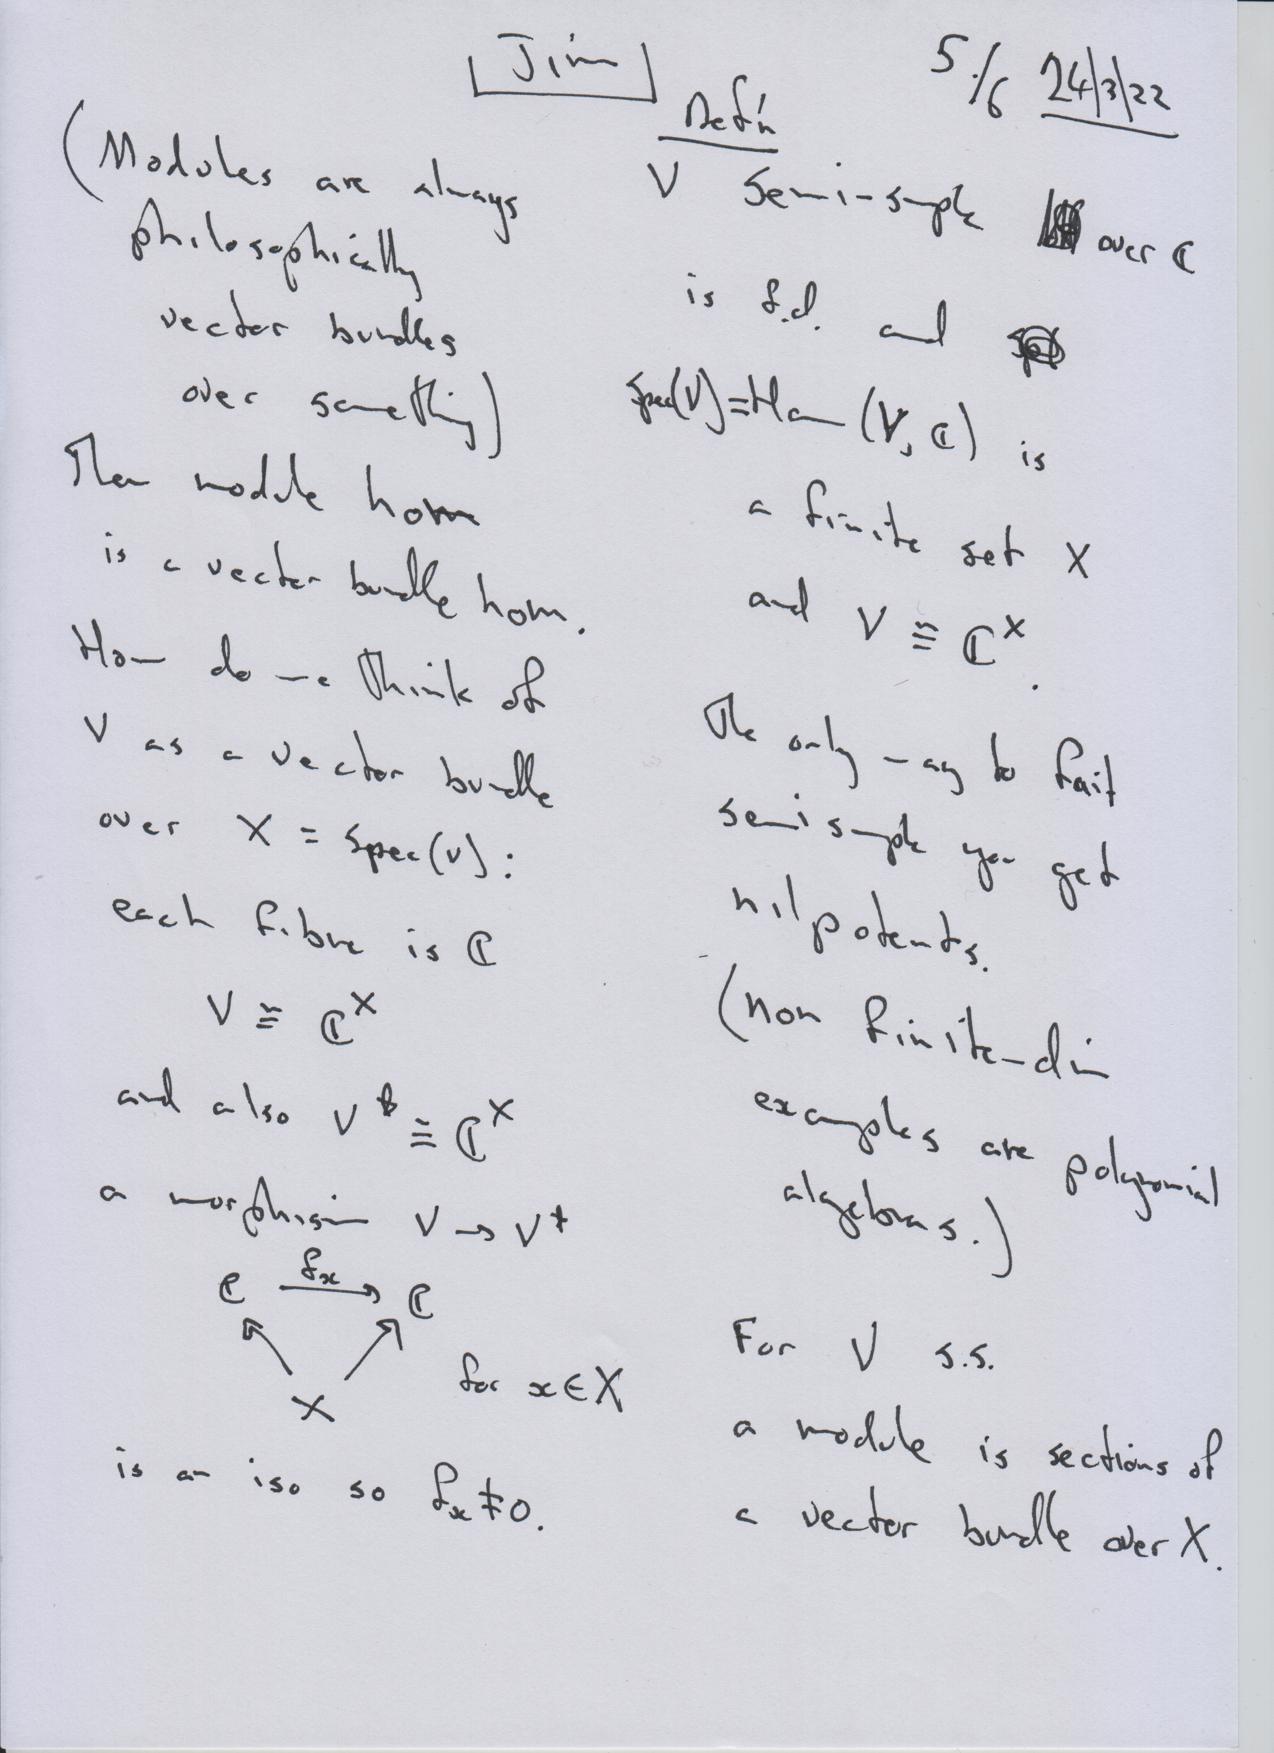 Jim
5/6 24/3/22
(Modules are always
philosophically
vector bundles
over something)
Then module hom
is a vector bundle hom.
How do we think of
V as a vector bundle
over X = Spec(V):
each fibre is ℂ
V ≅ ℂ^X
and also V* ≅ ℂ^X
a morphism V → V*
ℂ f_x→ ℂ
X
for x ∈ X
is an iso so f_x ≠ 0.
Def'n
V semi-simple over ℂ
is f.d. and
Spec(V) = Hom (V, ℂ) is
a finite set X
and V ≅ ℂ^X.
The only way to fail
semisimple you get
nilpotents.
(non finite-dim
examples are polynomial
algebras.)
For V s.s.
a module is sections of
a vector bundle over X.